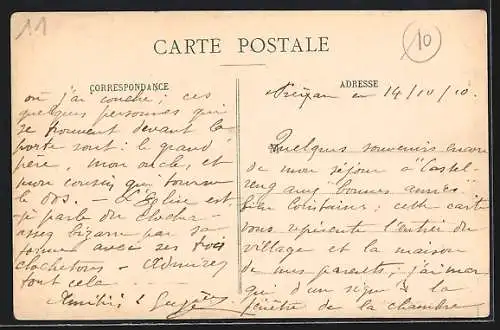 11
10
CARTE POSTALE
CORRESPONDANCE
ADRESSE
en 14/10/10.
Quelques souvenirs encore
de mon séjour à "Castel-
aux "bonnes années"
; cette carte
vous représente l'entrée du
village et la maison
de mes parents; j'ai
qui d'un la
fenêtre de la chambre
où j'ai couché; ces
quelques personnes qui
se trouvent devant la
porte sont: le grand
père, mon oncle, et
mon cousin qui tourne
le dos. - L'Eglise est
je parle du clocher
assez bizarre par sa
forme avec ses trois
clochetons - Admirez
tout cela
Amitiés